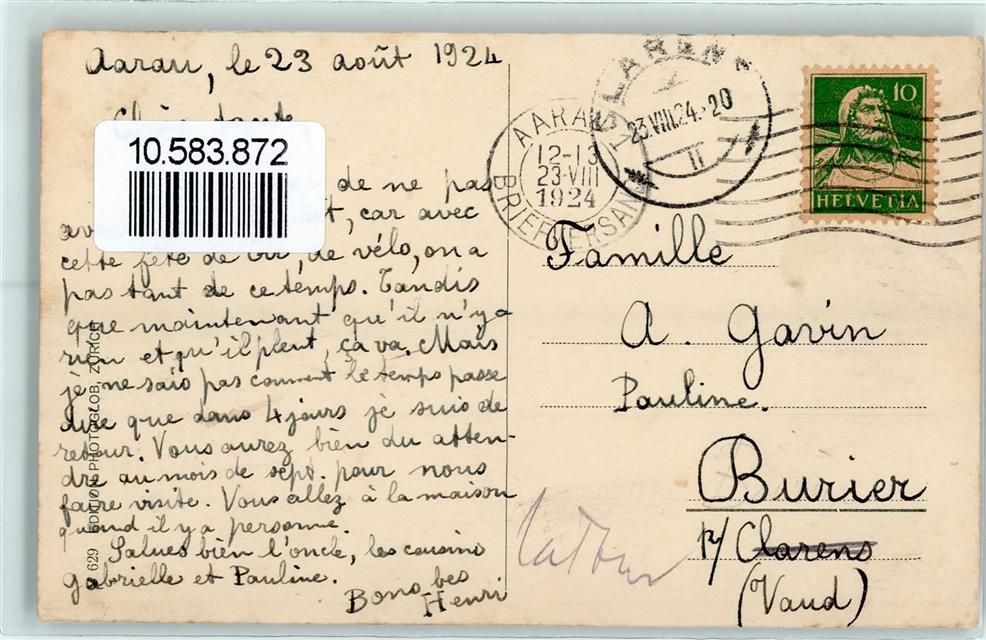 Aarau, le 23 août 1924
10.583.872
de ne pas
, car avec
cette fête de tir, de vélo, on a
pas tant de ce temps. Tandis
que maintenant qu'il n'y a
rien et qu'il pleut, ça va. Mais
je ne sais pas comment le temps passe
dire que dans 4 jours je suis de
retour. Vous aurez bien du atten-
dre au mois de sept. pour nous
faire visite. Vous allez à la maison
quand il y a personne.
Salues bien l'oncle, les cousins
Gabrielle et Pauline.
Bons bes
Henri
629 EDITION PHOTOGLOB, ZÜRICH
AARAU
12-13
23·VIII
1924
BRIEFVERSAND
CLARENS
23.VIII.24.-20
II
10
HELVETIA
Famille
A. Gavin
Pauline.
Burier
p/ Clarens
(Vaud)
La Tour